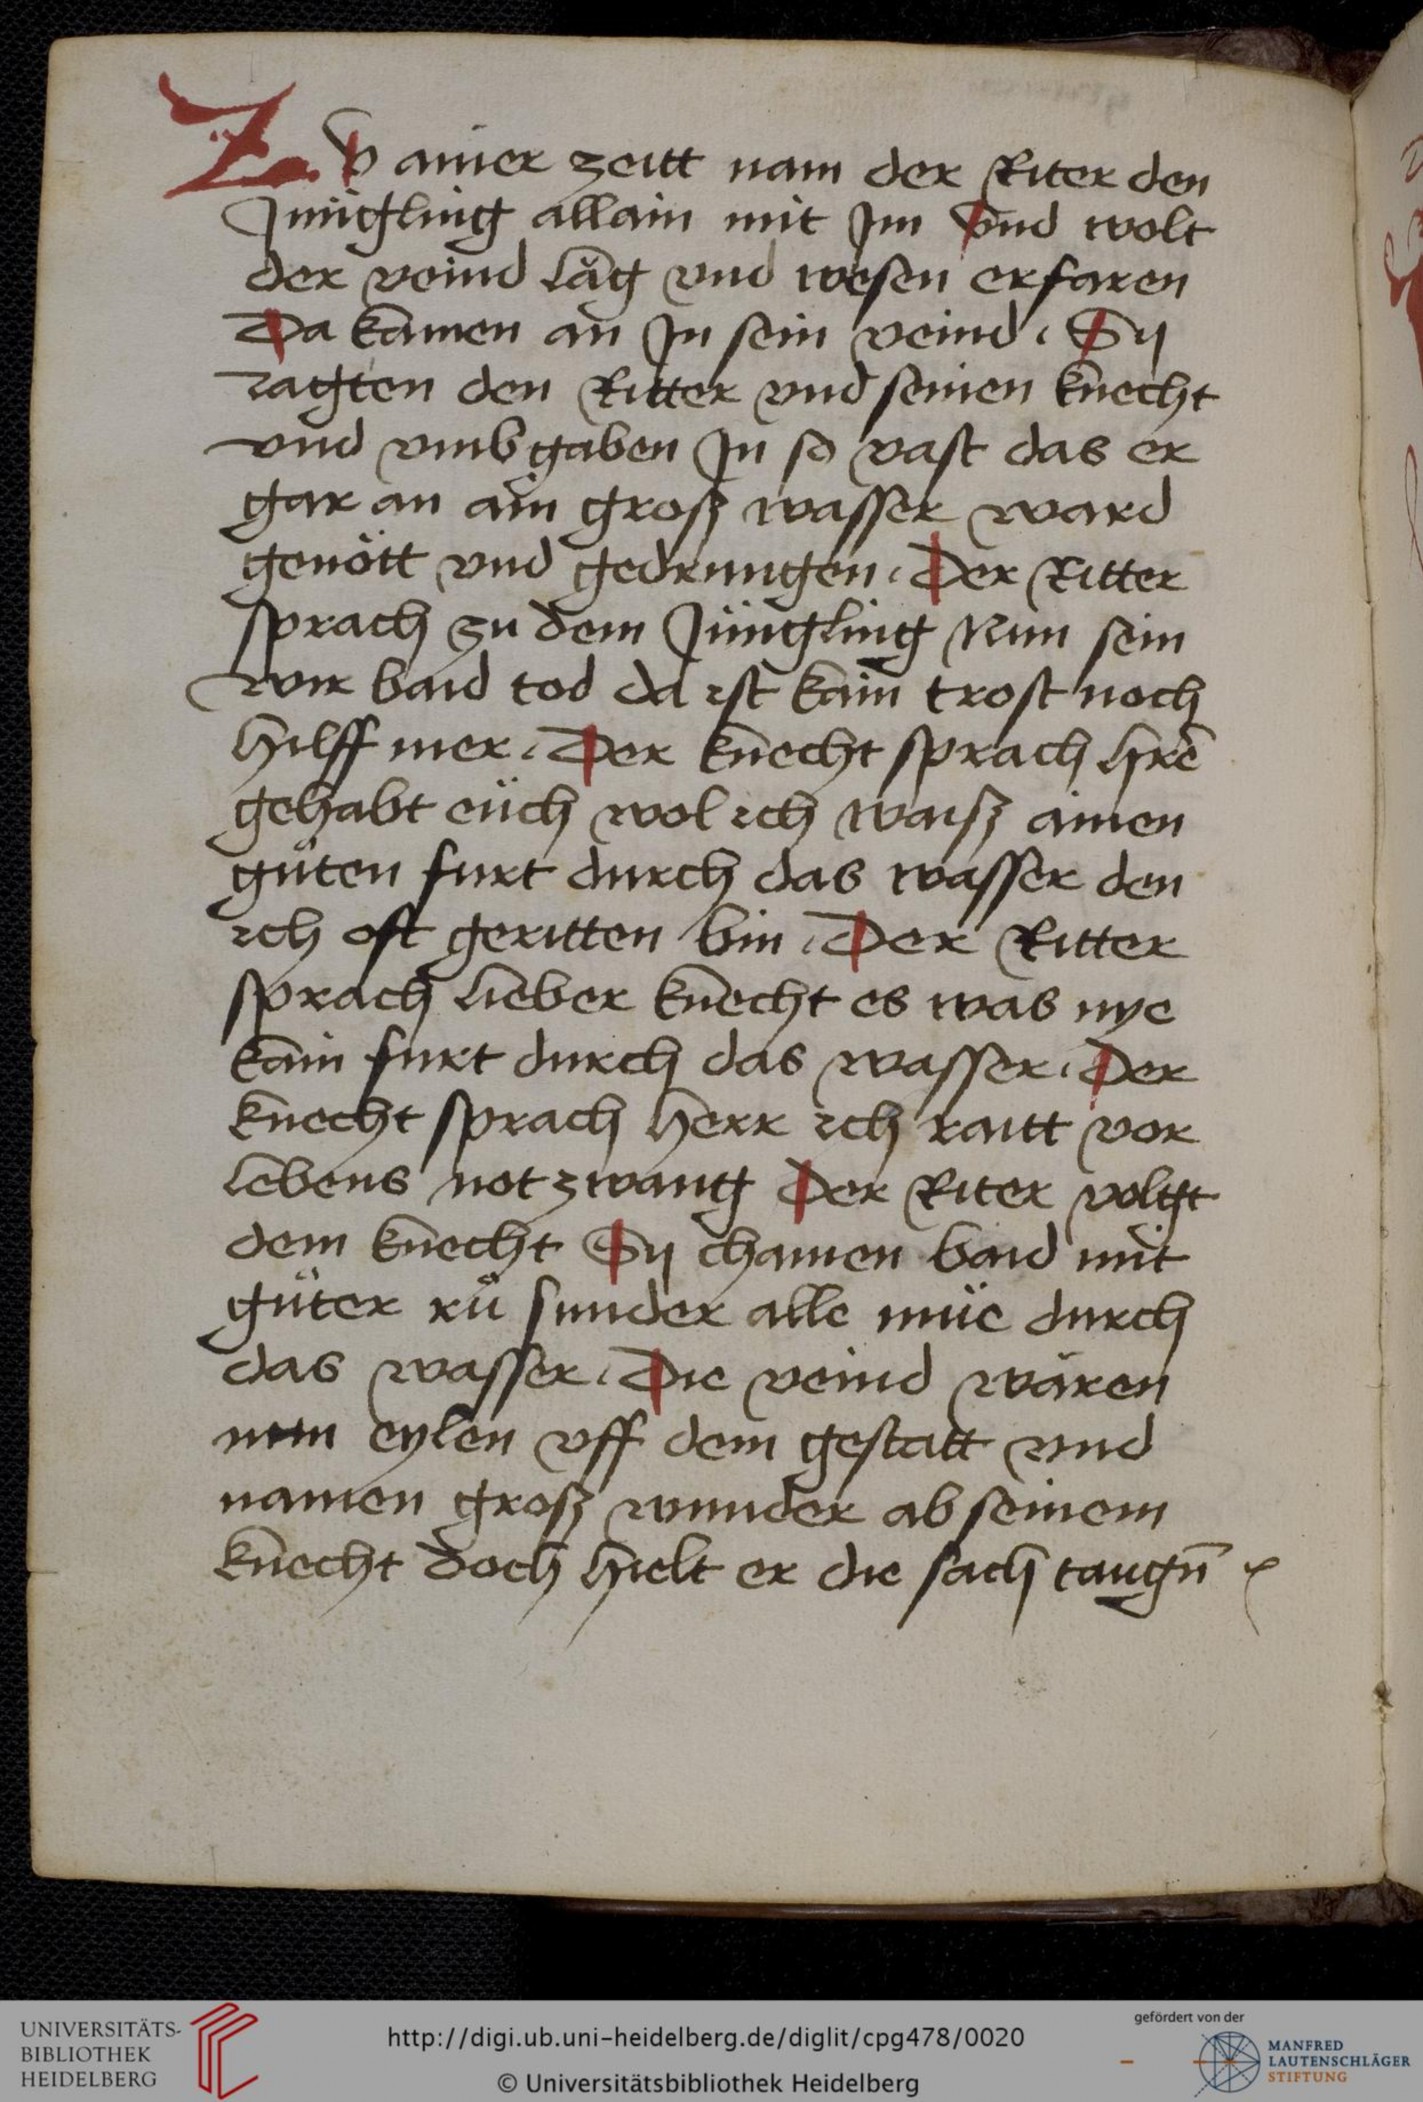 Zů ainer zeitt nam der Riter den
Jüngling allain mit Jm vnd wolt
der veind läg vnd wesen erfaren
Da kamen an Jn sein veind. Sy
iagten den Ritter vnd seinen knecht
vnd vmbgaben Jn so vast das er
gar an ain groß wasser ward
genött vnd gedrungen. Der Ritter
sprach zu dem Jüngling Nun sein
wir baid tod da ist kain trost noch
hilff mer. Der knecht sprach hr̄e
gehabt eüch wol ich waiß ainen
gůten furt durch das wasser den
ich oft geritten bin. Der Ritter
sprach lieber knecht es was nye
kain furt durch das wasser. Der
knecht sprach herr ich raitt vor
lebens not zwang Der Riter volgt
dem knecht Sy chamen baid mit
gůter rů sunder alle müe durch
das wasser. Die veind wären
nun eylen vff dem gestatt vnd
namen groß wunder ab seinem
knecht doch hielt er die sach taugn̄
UNIVERSITÄTS-
BIBLIOTHEK
HEIDELBERG
http://digi.ub.uni-heidelberg.de/diglit/cpg478/0020
© Universitätsbibliothek Heidelberg
gefördert von der
MANFRED
LAUTENSCHLÄGER
STIFTUNG